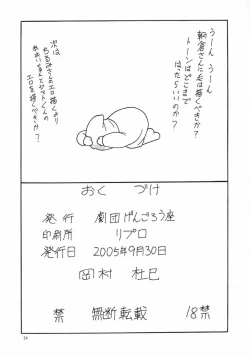 うーん うーん
朝倉さんに毛は描くべきか?
トーンはどこまで
はったらいいのか?
次は
ちるみさんのエロ描くより
エロを描くべきか?
おくづけ
発行 劇団げんごろう座
印刷所 リブロ
発行日 2005年9月30日
岡村 杜巳
禁 無断転載 18禁
24